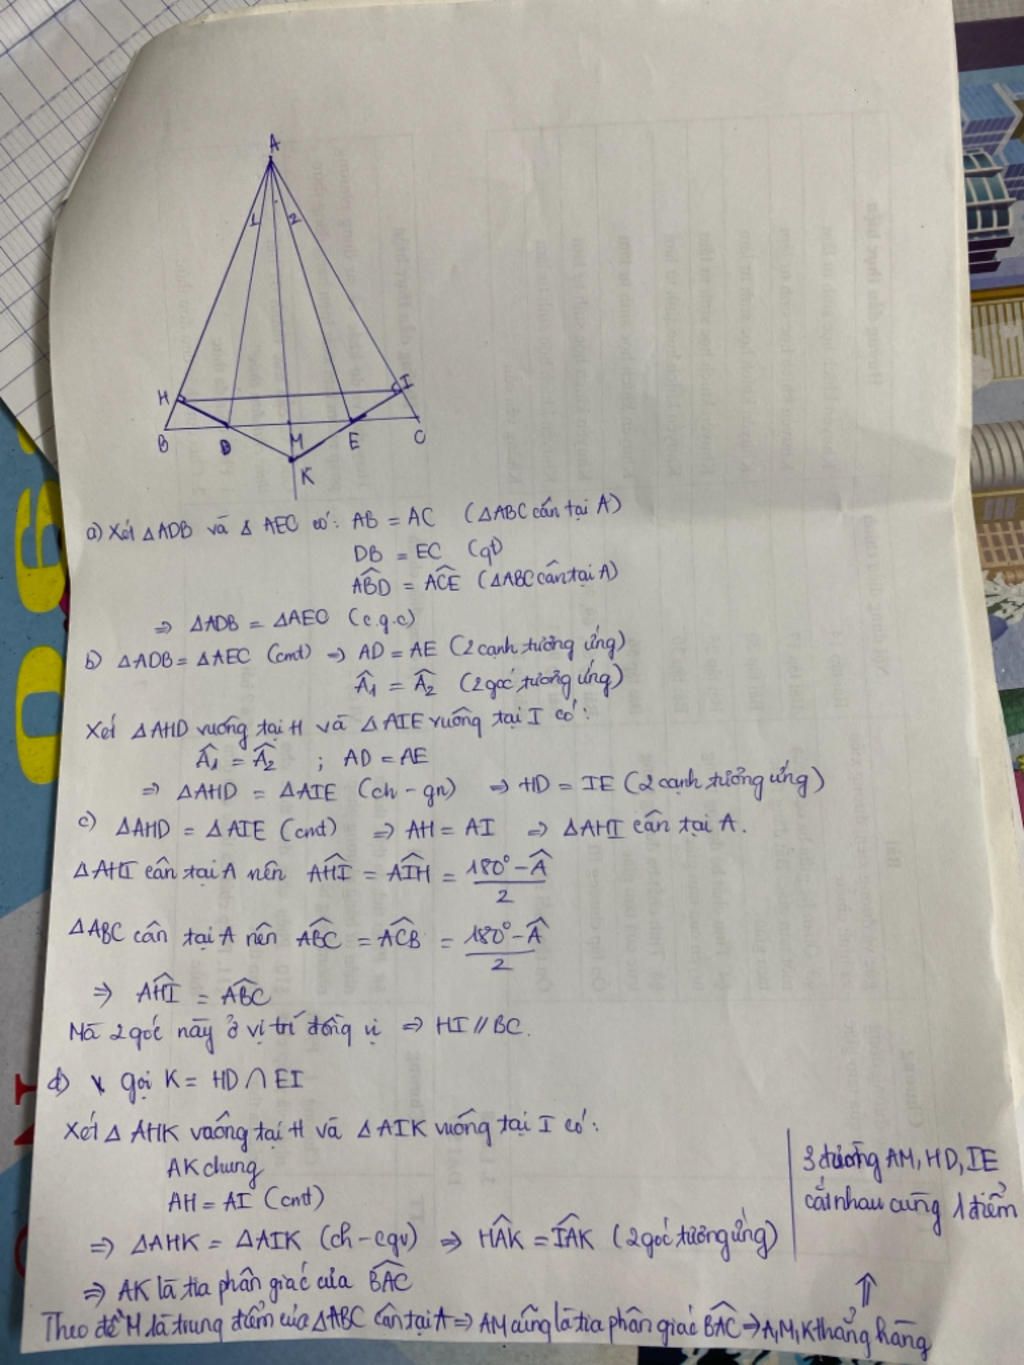 A
1 2
H I
B D M E C
K
a) Xét ΔADB và Δ AEC có: AB = AC (ΔABC cân tại A)
DB = EC (gt)
ABD̂ = ACÊ (ΔABC cân tại A)
⇒ ΔADB = ΔAEC (c.g.c)
b) ΔADB = ΔAEC (cmt) ⇒ AD = AE (2 cạnh tương ứng)
Â₁ = Â₂ (2 góc tương ứng)
Xét ΔAHD vuông tại H và ΔAIE vuông tại I có:
Â₁ = Â₂ ; AD = AE
⇒ ΔAHD = ΔAIE (ch - gn) ⇒ HD = IE (2 cạnh tương ứng)
c) ΔAHD = ΔAIE (cmt) ⇒ AH = AI ⇒ ΔAHI cân tại A.
ΔAHI cân tại A nên AHÎ = AIĤ = (180° - Â)/2
ΔABC cân tại A nên ABĈ = ACB̂ = (180° - Â)/2
⇒ AHÎ = ABĈ
Mà 2 góc này ở vị trí đồng vị ⇒ HI // BC.
d) * gọi K = HD ∩ EI
Xét Δ AHK vuông tại H và ΔAIK vuông tại I có:
AK chung
AH = AI (cmt)
⇒ ΔAHK = ΔAIK (ch - cgv) ⇒ HÂK = IÂK (2 góc tương ứng)
⇒ AK là tia phân giác của BÂC
Theo đề M là trung điểm của ΔABC cân tại A ⇒ AM cũng là tia phân giác BÂC ⇒ A, M, K thẳng hàng
⇑
3 đường AM, HD, IE
cắt nhau cùng 1 điểm